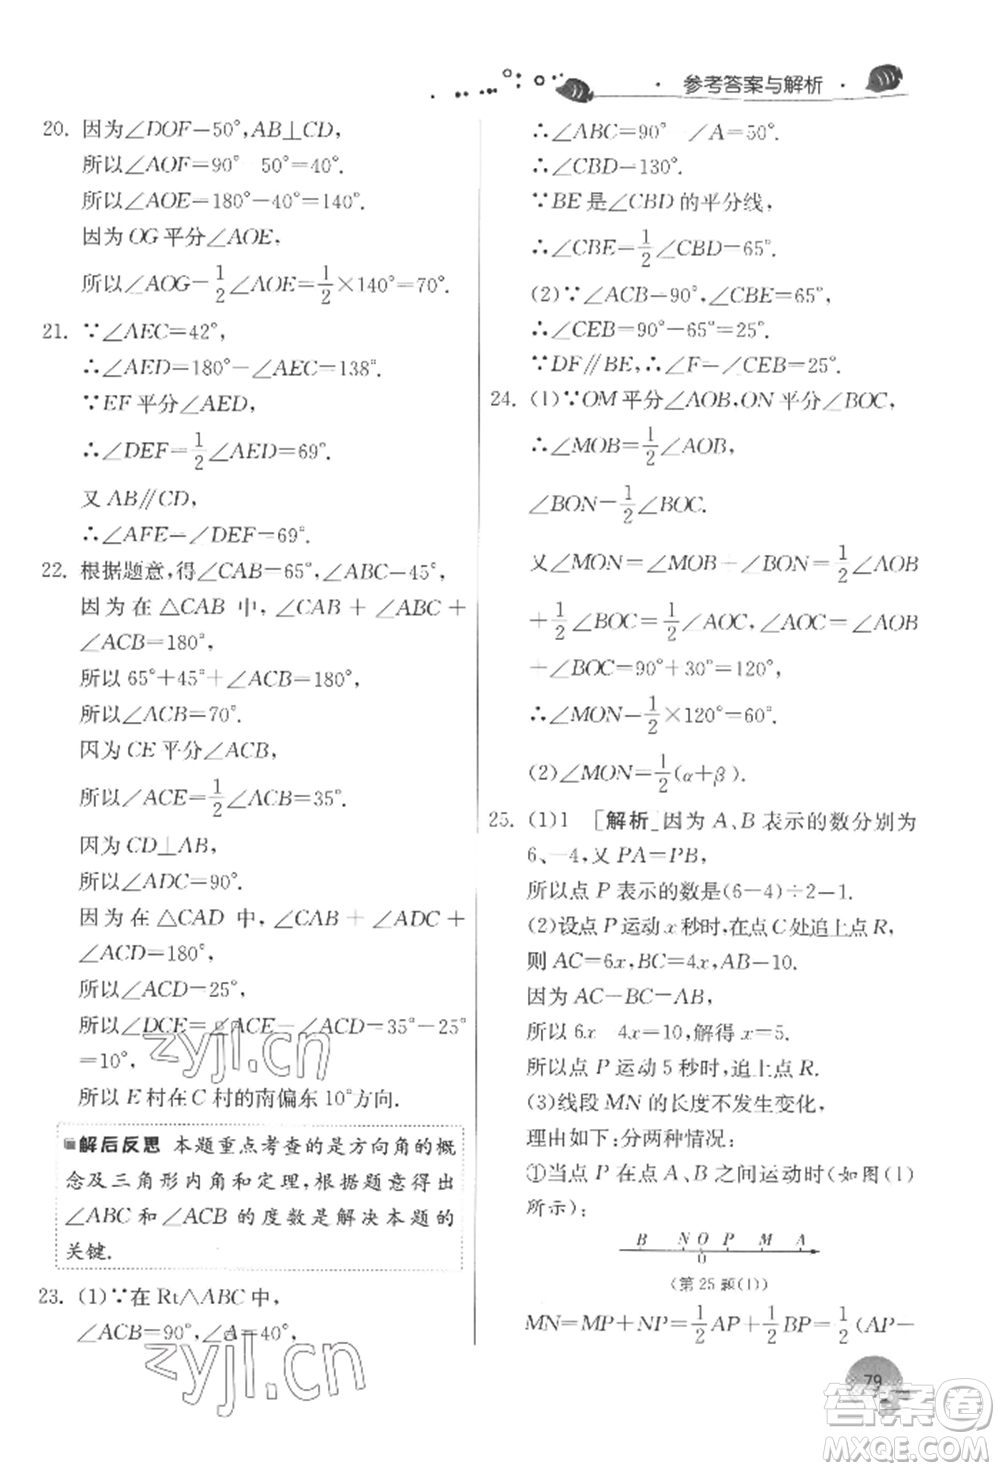 参考答案与解析
20. 因为∠DOF=50°,AB⊥CD,
所以∠AOF=90° 50°=40°.
所以∠AOE=180°-40°=140°.
因为OG平分∠AOE,
所以∠AOG=1/2∠AOE=1/2×140°=70°.
21. ∵∠AEC=42°,
∴∠AED=180°-∠AEC=138°.
∵EF平分∠AED,
∴∠DEF=1/2∠AED=69°.
又AB∥CD,
∴∠AFE=∠DEF=69°.
22. 根据题意,得∠CAB=65°,∠ABC=45°,
因为在△CAB中,∠CAB+∠ABC+
∠ACB=180°,
所以65°+45°+∠ACB=180°,
所以∠ACB=70°.
因为CE平分∠ACB,
所以∠ACE=1/2∠ACB=35°.
因为CD⊥AB,
所以∠ADC=90°.
因为在△CAD中,∠CAB+∠ADC+
∠ACD=180°,
所以∠ACD=25°,
所以∠DCE=∠ACE-∠ACD=35°-25°
=10°,
所以E村在C村的南偏东10°方向.
解后反思 本题重点考查的是方向角的概
念及三角形内角和定理,根据题意得出
∠ABC和∠ACB的度数是解决本题的
关键.
23. (1)∵在Rt△ABC中,
∠ACB=90°,∠A=40°,
∴∠ABC=90° ∠A=50°.
∴∠CBD=130°.
∵BE是∠CBD的平分线,
∴∠CBE=1/2∠CBD=65°.
(2)∵∠ACB=90°,∠CBE=65°,
∴∠CEB=90°-65°=25°.
∵DF∥BE,∴∠F=∠CEB=25°.
24. (1)∵OM平分∠AOB,ON平分∠BOC,
∴∠MOB=1/2∠AOB,
∠BON=1/2∠BOC.
又∠MON=∠MOB+∠BON=1/2∠AOB
+1/2∠BOC=1/2∠AOC,∠AOC=∠AOB
+∠BOC=90°+30°=120°,
∴∠MON=1/2×120°=60°.
(2)∠MON=1/2(α+β).
25. (1)1 [解析]因为A、B表示的数分别为
6、-4,又PA=PB,
所以点P表示的数是(6-4)÷2=1.
(2)设点P运动x秒时,在点C处追上点R,
则AC=6x,BC=4x,AB=10.
因为AC-BC=AB,
所以6x 4x=10,解得x=5.
所以点P运动5秒时,追上点R.
(3)线段MN的长度不发生变化,
理由如下:分两种情况:
①当点P在点A、B之间运动时(如图(1)
所示):
B N O P M A
0
(第25题(1))
MN=MP+NP=1/2AP+1/2BP=1/2(AP-
79
zyjl.cn
zyjl.cn
答案圈
MXQE.COM